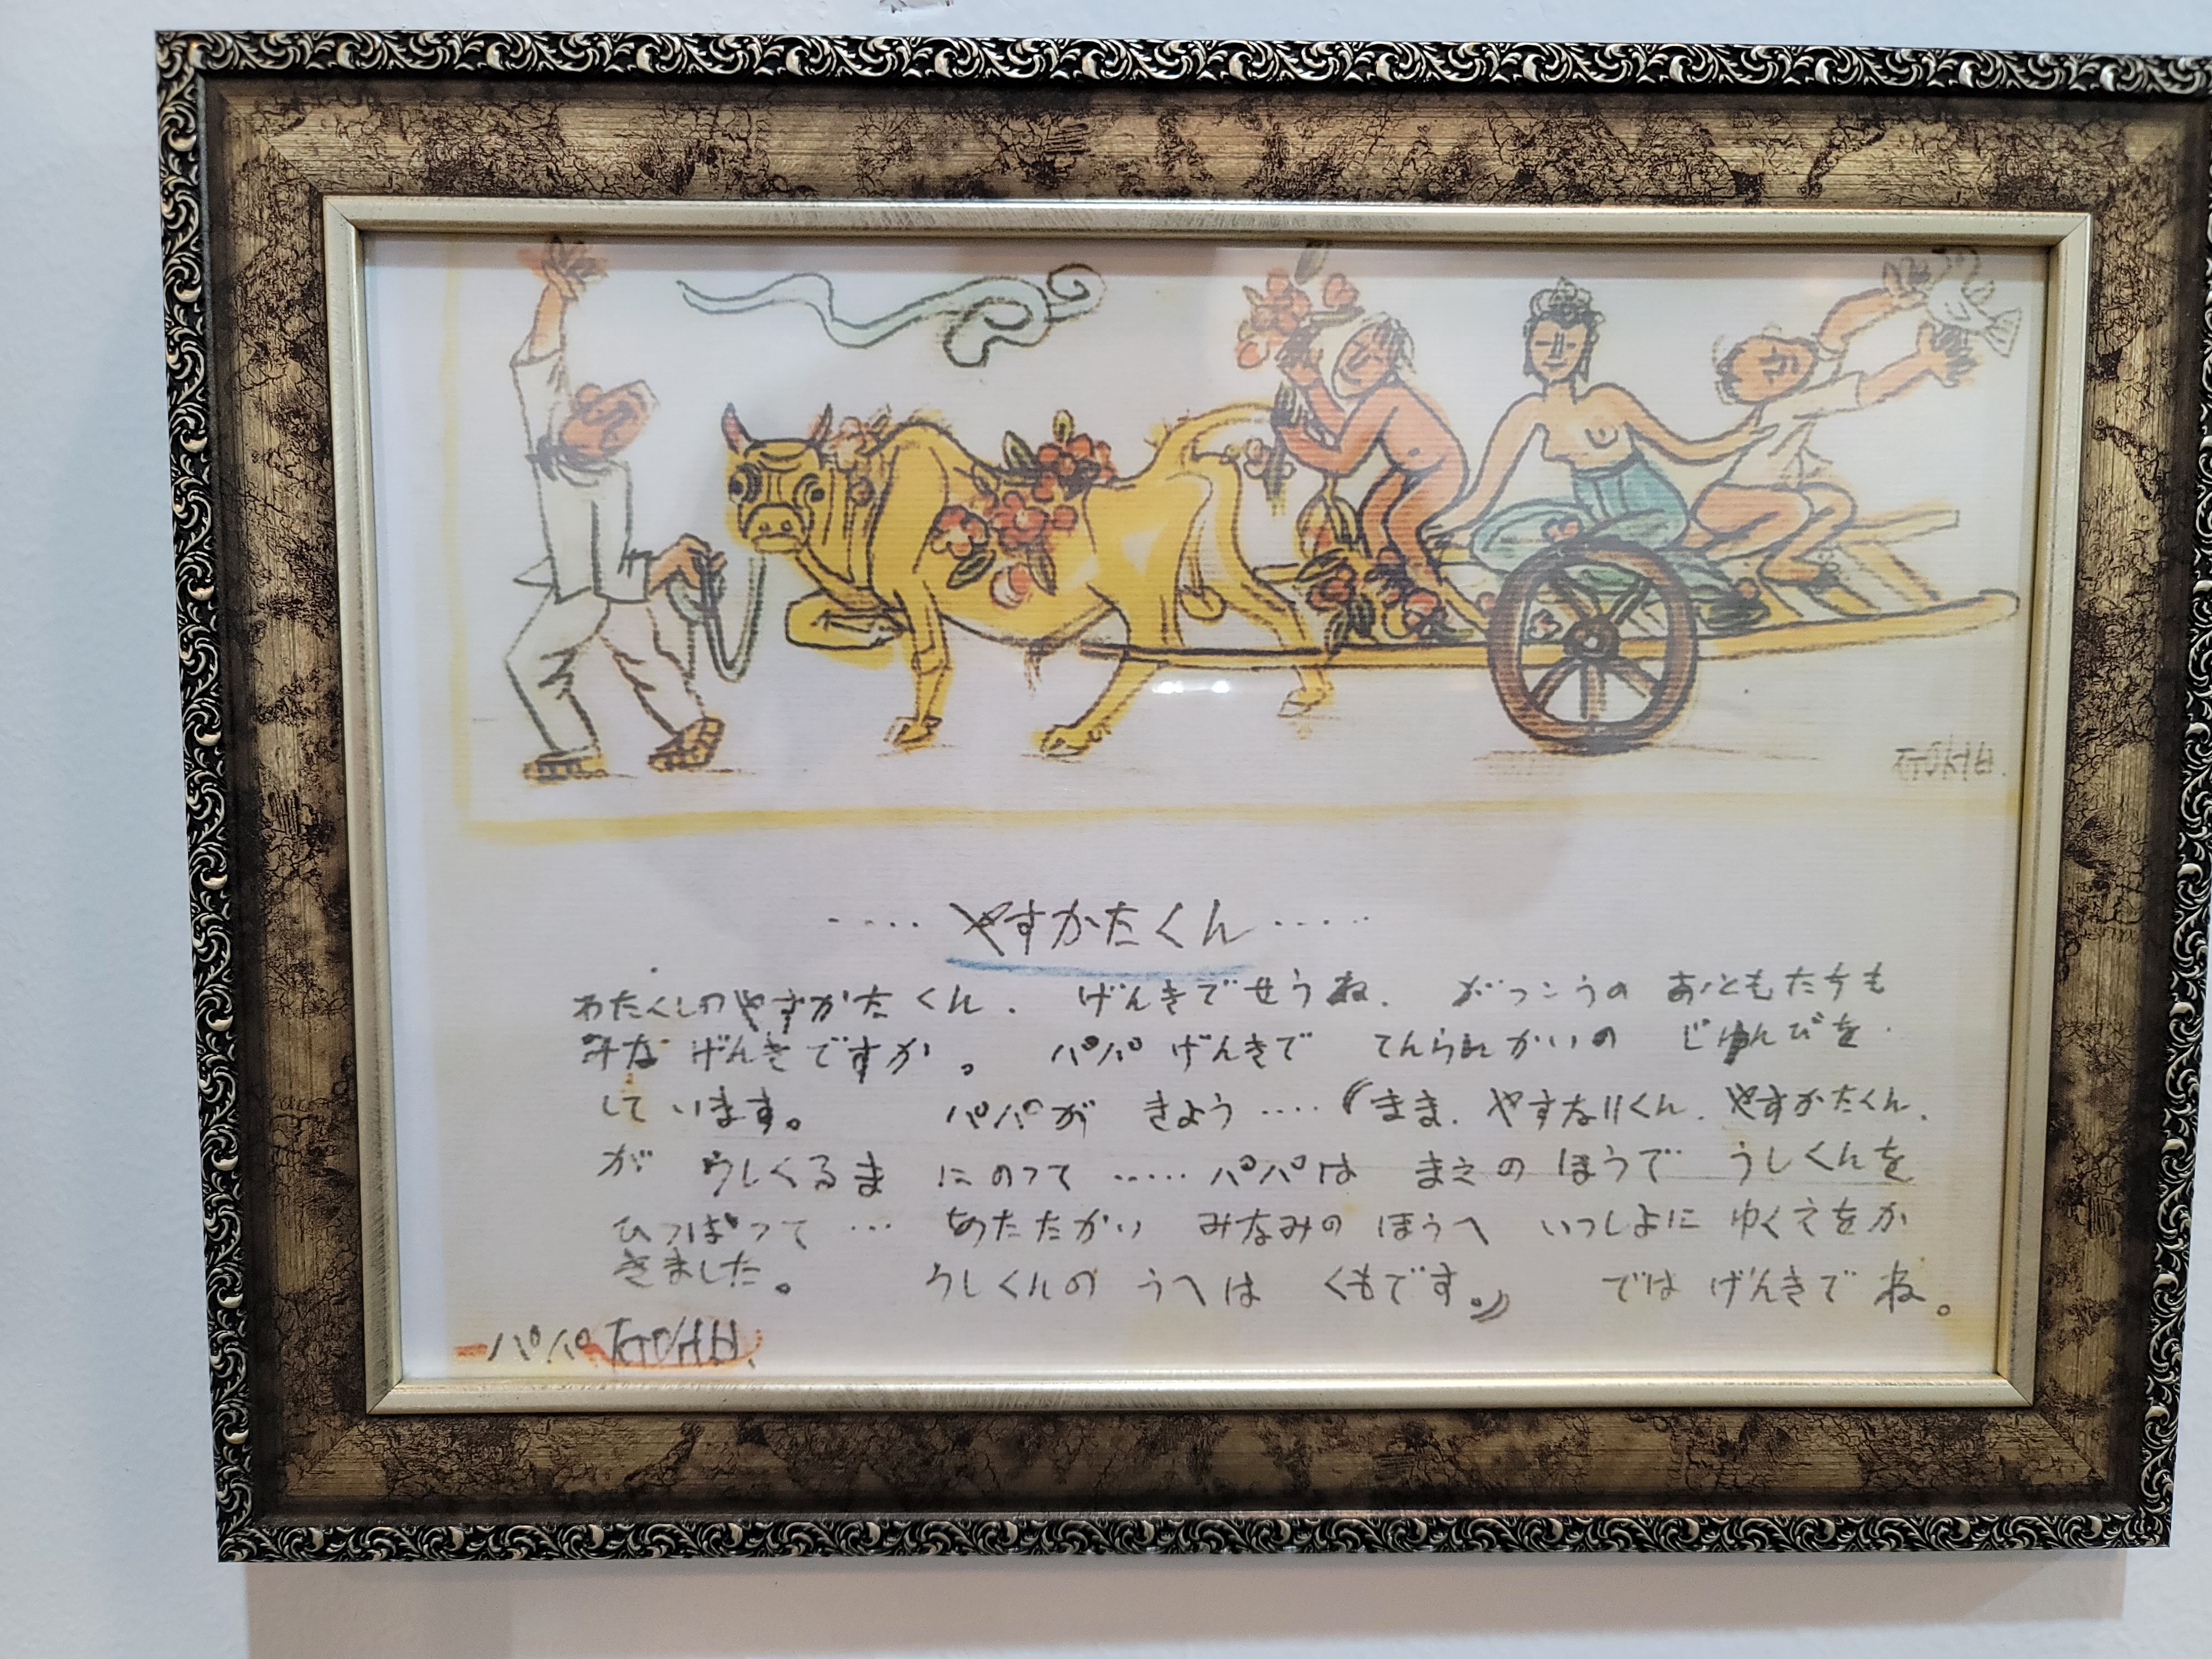 ㅈㅜㅇㅅㅓㅂ
‥‥やすかたくん‥‥
わたくしのやすかたくん. げんきでせうね. がっこうの おともたちも
みな げんきですか。 パパ げんきで てんらんかいの じゅんびを
して います。 パパが きよう‥‥『まま. やすなりくん. やすかたくん.
が うしくるま にのって ‥‥‥パパは まえの ほうで うしくんを
ひっぱって ‥‥ あたたかい みなみの ほうへ いっしよに ゆくえをか
きました。 うしくんの うへは くもです。』 では げんきで ね。
ーパパ ㅈㅜㅇㅅㅓㅂ.